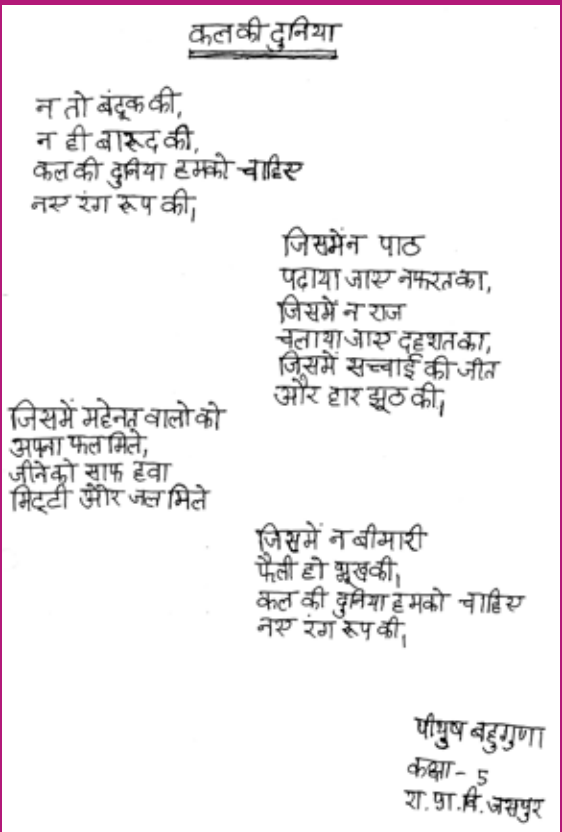 कल की दुनिया
न तो बंदूक की,
न ही बारूद की,
कल की दुनिया हमको चाहिए
नए रंग रूप की,
जिसमें न पाठ
पढ़ाया जाए नफरत का,
जिसमें न राज
चलाया जाए दहशत का,
जिसमें सच्चाई की जीत
और हार झूठ की,
जिसमें महेनत वालो को
अपना फल मिले,
जीने को साफ हवा
मिट्टी और जल मिले
जिसमें न बीमारी
फैली हो भूख की,
कल की दुनिया हमको चाहिए
नए रंग रूप की,
पीयुष बहुगुणा
कक्षा - 5
रा.प्रा.वि. जसपुर